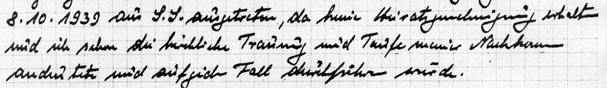 8.10.1939 aus S.S. ausgetreten, da keine Heiratsgenehmigung erhalt
und ich schon die kirchliche Trauung und Taufe meiner Nachkom
andeutete und auf jeden Fall durchführen würde.